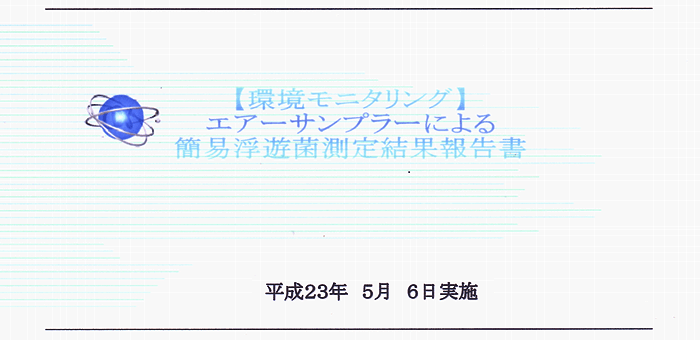 【環境モニタリング】
エアーサンプラーによる
簡易浮遊菌測定結果報告書
平成23年　5月　6日実施